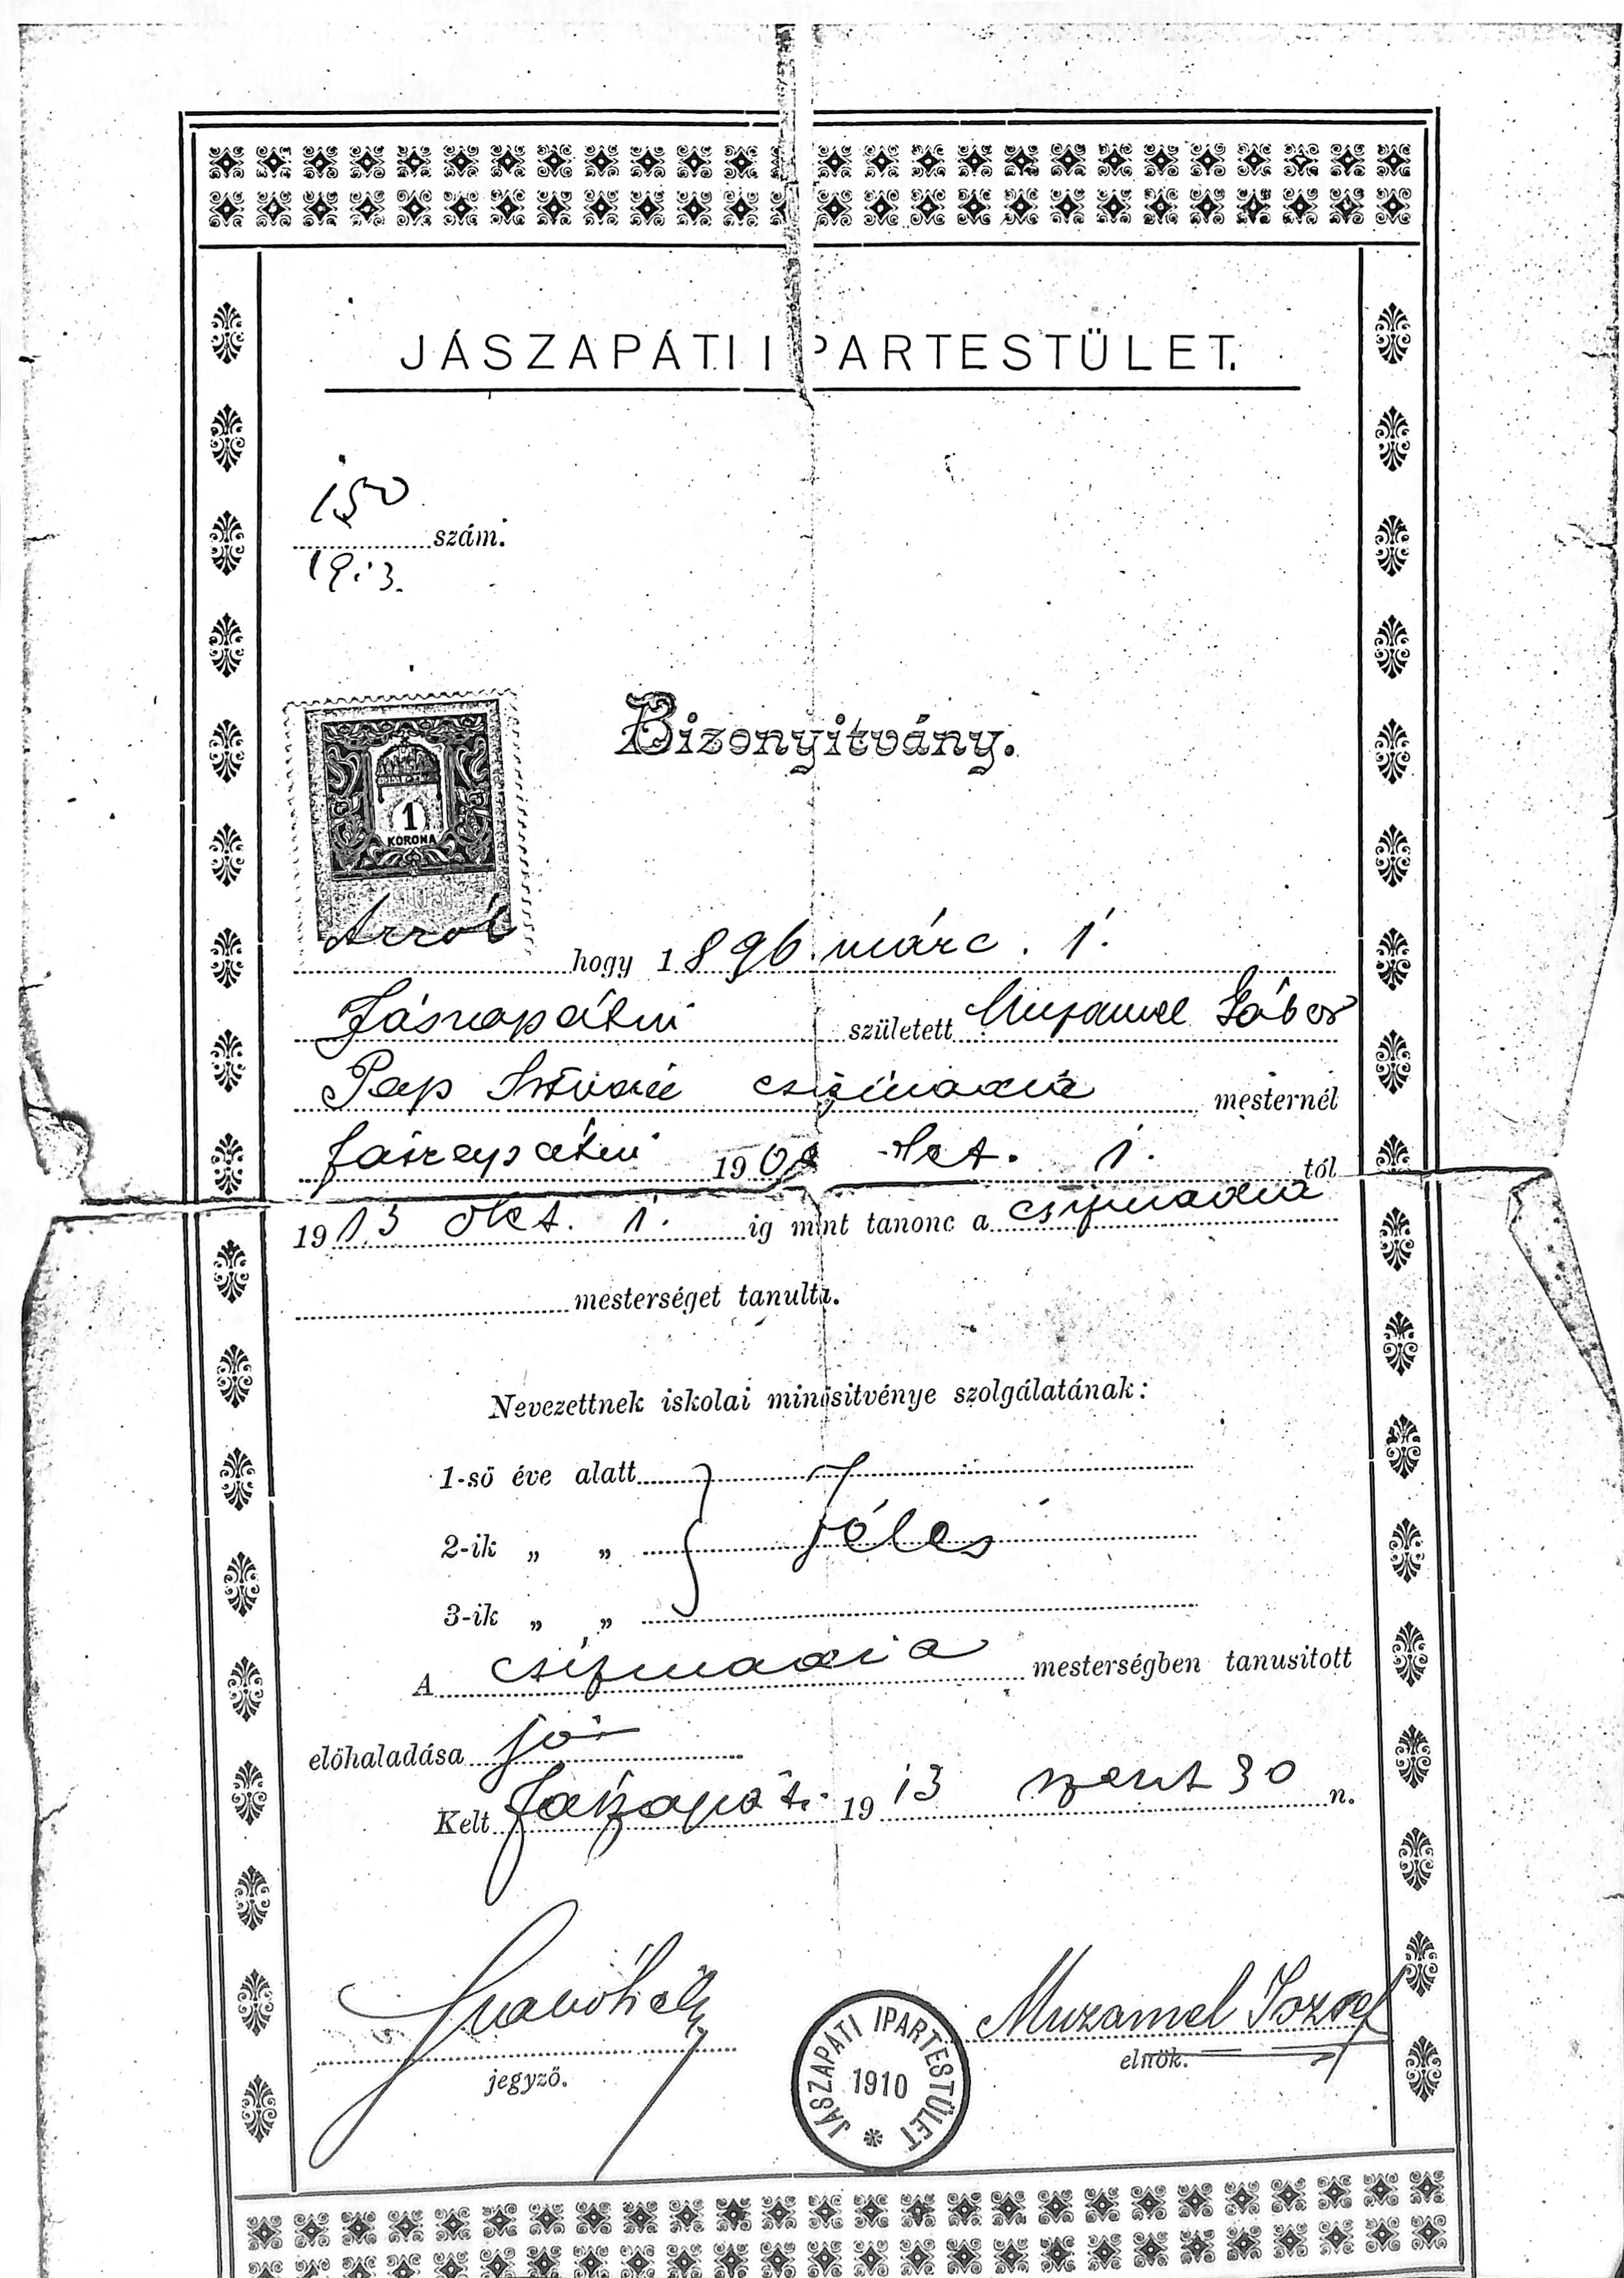 JÁSZAPÁTI IPARTESTÜLET.
150
szám.
1913.
Bizonyitvány.
1
KORONA
Arról hogy 1896 márc. 1.
Jászapátin született Muzamel Gábor
Pap István csizmadia mesternél
Jászapátin 19 okt. 1. től
1913 okt. 1. ig mint tanonc a csizmadia
mesterséget tanulta.
Nevezettnek iskolai minősitvénye szolgálatának:
1-ső éve alatt
2-ik „ „ jéles
3-ik „ „
A csizmadia mesterségben tanusitott
előhaladása jó
Kelt Jászapáti 1913 szept 30 n.
Muzamel József
jegyző.
elnök.
JÁSZAPÁTI IPARTESTÜLET
1910